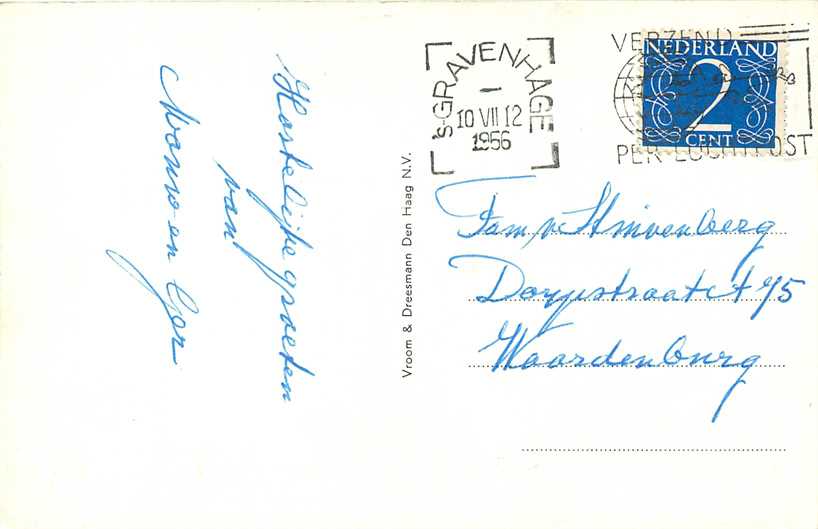 Hartelijke groeten
van
's-GRAVENHAGE
10 VII 12
1956
VERZEND
PER LUCHTPOST
NEDERLAND
2
CENT
Vroom & Dreesmann Den Haag N.V.
Fam. v.
Dorpstraat
Waardenburg